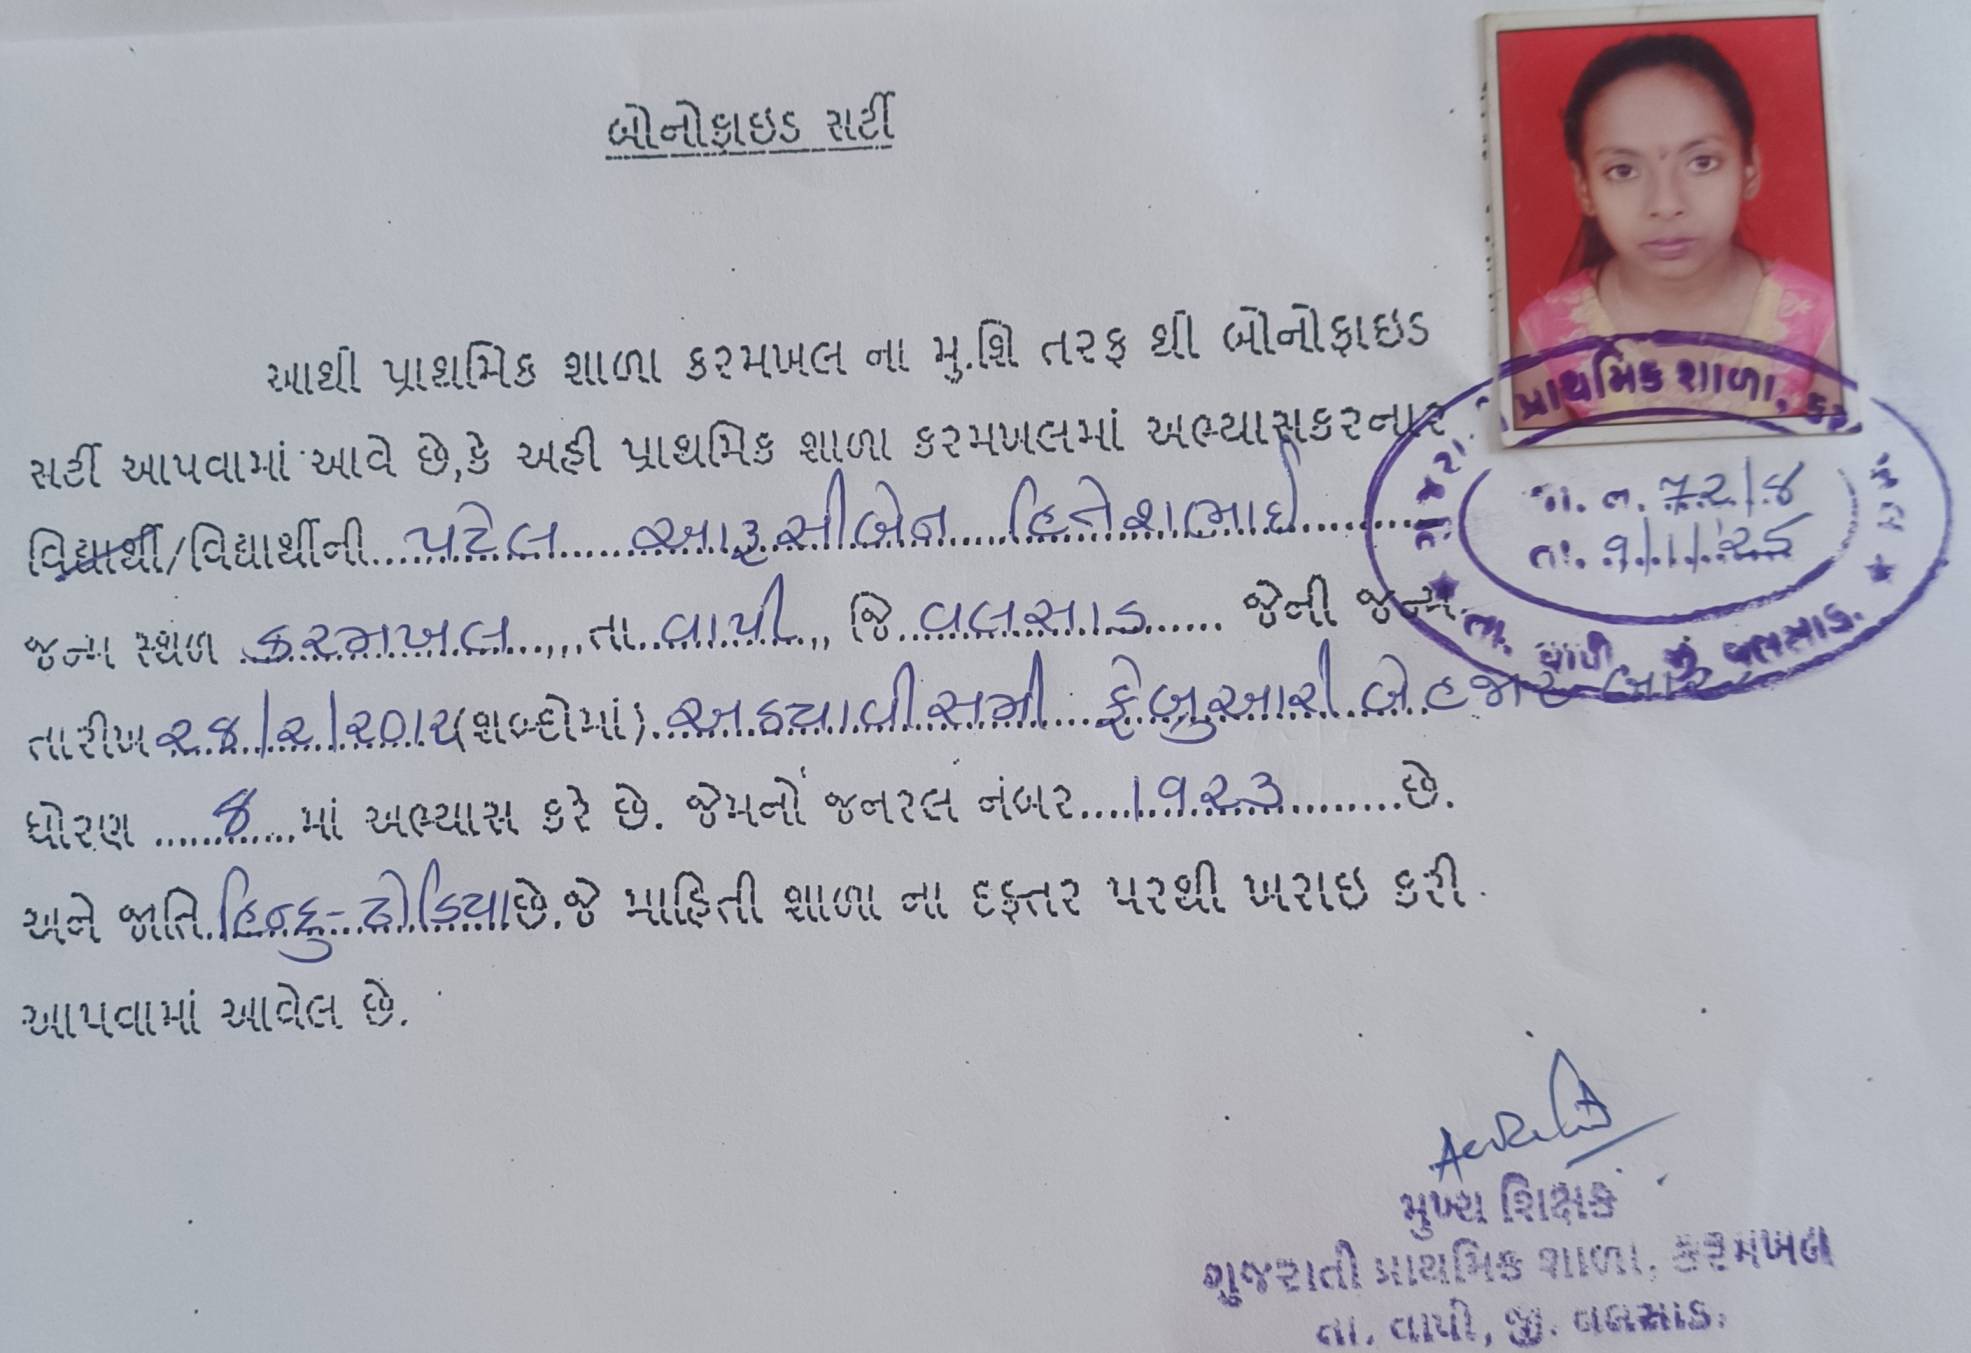 બોનોફાઇડ સર્ટી
આથી પ્રાથમિક શાળા કરમખલ ના મુ.શિ તરફ થી બોનોફાઇડ
સર્ટી આપવામાં આવે છે,કે અહી પ્રાથમિક શાળા કરમખલમાં અભ્યાસકરનાર
વિદ્યાર્થી/વિદ્યાર્થીની...પટેલ.....આરૂસીબેન...હિતેશભાઈ.........
જન્મ સ્થળ કરમખલ....તા..વાપી.,, જિ..વલસાડ...... જેની જન્મ
તારીખ ૨૮/૨/૨૦૧૨(શબ્દોમાં).અઠ્યાવીસમી...ફેબ્રુઆરી બે હજાર બાર
ધોરણ ......૮....માં અભ્યાસ કરે છે. જેમનો જનરલ નંબર....૧૯૨૩.........છે.
અને જાતિ.હિન્દુ-ઢોડિયા છે.જે માહિતી શાળા ના દફતર પરથી ખરાઇ કરી
આપવામાં આવેલ છે.
પ્રાથમિક શાળા,
જા. ન. ૭૨/૪
તા. ૧/૧/૨૬
તા. વાપી વલસાડ.
મુખ્ય શિક્ષક
ગુજરાતી પ્રાથમિક શાળા, કરમખલ
તા. વાપી, જી. વલસાડ.